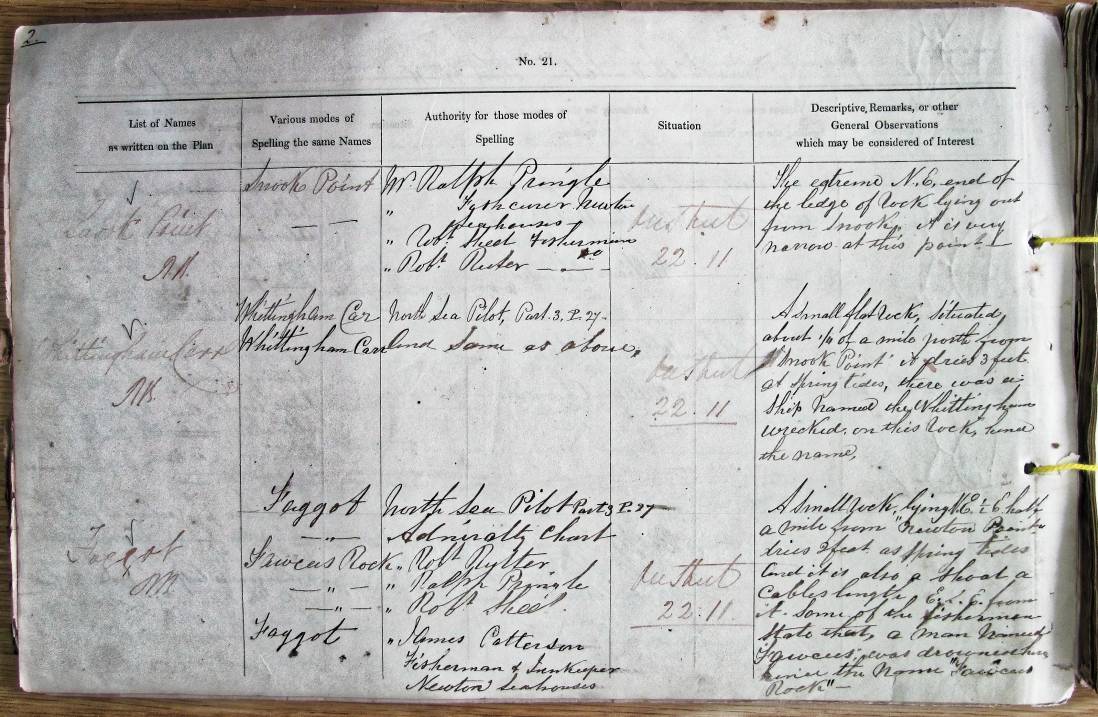 2.
No. 21.
List of Names
as written on the Plan
Various modes of
Spelling the same Names
Authority for those modes of
Spelling
Situation
Descriptive Remarks, or other
General Observations
which may be considered of Interest
Point
Snook Point
— " —
Mr. Ralph Pringle
" Fishcurer Newton
Seahouses
" Robt. Sheel Fisherman
" Robt. Ruter — do —
22.11
The extreme N.E. end of
the ledge of rock lying out
from Snook, it is very
narrow at this point —
Whittingham Carr
Whittingham Car
Whittingham Carr
North Sea Pilot, Part. 3, P. 27.
and same as above,
22.11
A small flat rock, situated
about 1/4 of a mile north from
"Snook Point" it dries 3 feet
at Spring tides, there was a
Ship named the Whittingham
wrecked, on this rock, hence
the name,
Faggot
Faggot
— " —
Fawcus Rock
— " —
— " —
Faggot
North Sea Pilot Part 3 P. 27
Admiralty Chart
" Robt. Rutter
" Ralph Pringle
" Robt. Sheel.
" James Patterson
Fisherman & Innkeeper
Newton Seahouses
22.11.
A small rock, lying half
a mile from "Newton Point"
dries 2 feet as Spring tides
and it is also a shoal a
cables length from
it. Some of the fishermen
state that, a man named
Fawcus, was drowned
hence the Name "Fawcus
Rock" —